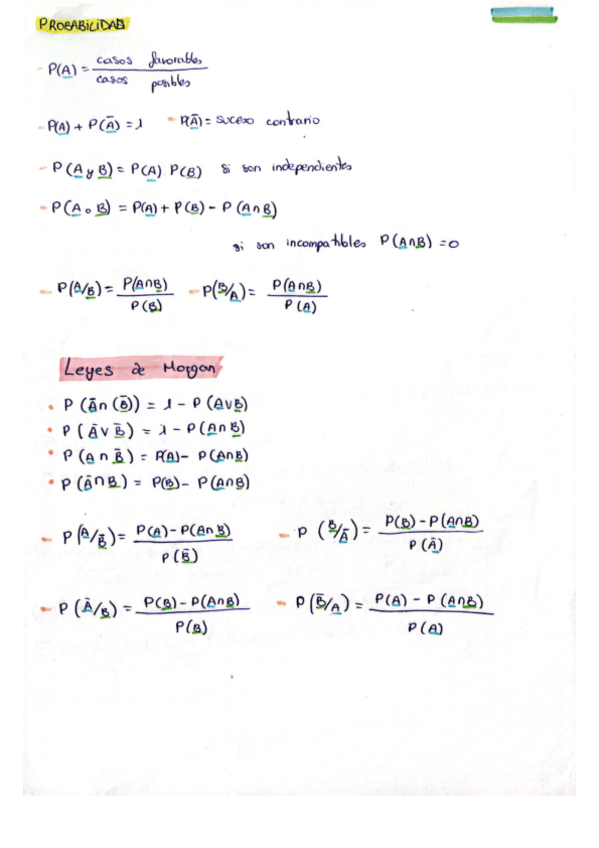 PROBABILIDAD
- P(A) = casos favorables / casos posibles
- P(A) + P(Ā) = 1 - P(Ā) = suceso contrario
- P(A y B) = P(A) · P(B) si son independientes
- P(A o B) = P(A) + P(B) - P(A∩B)
si son incompatibles P(A∩B) = 0
- P(A/B) = P(A∩B) / P(B) - P(B/A) = P(A∩B) / P(A)
Leyes de Morgan
• P(Ā∩(B̄)) = 1 - P(A∪B)
• P(Ā∪B̄) = 1 - P(A∩B)
• P(A∩B̄) = P(A) - P(A∩B)
• P(Ā∩B) = P(B) - P(A∩B)
- P(A/B̄) = P(A) - P(A∩B) / P(B̄) - P(B/Ā) = P(B) - P(A∩B) / P(Ā)
- P(Ā/B) = P(B) - P(A∩B) / P(B) - P(B̄/A) = P(A) - P(A∩B) / P(A)